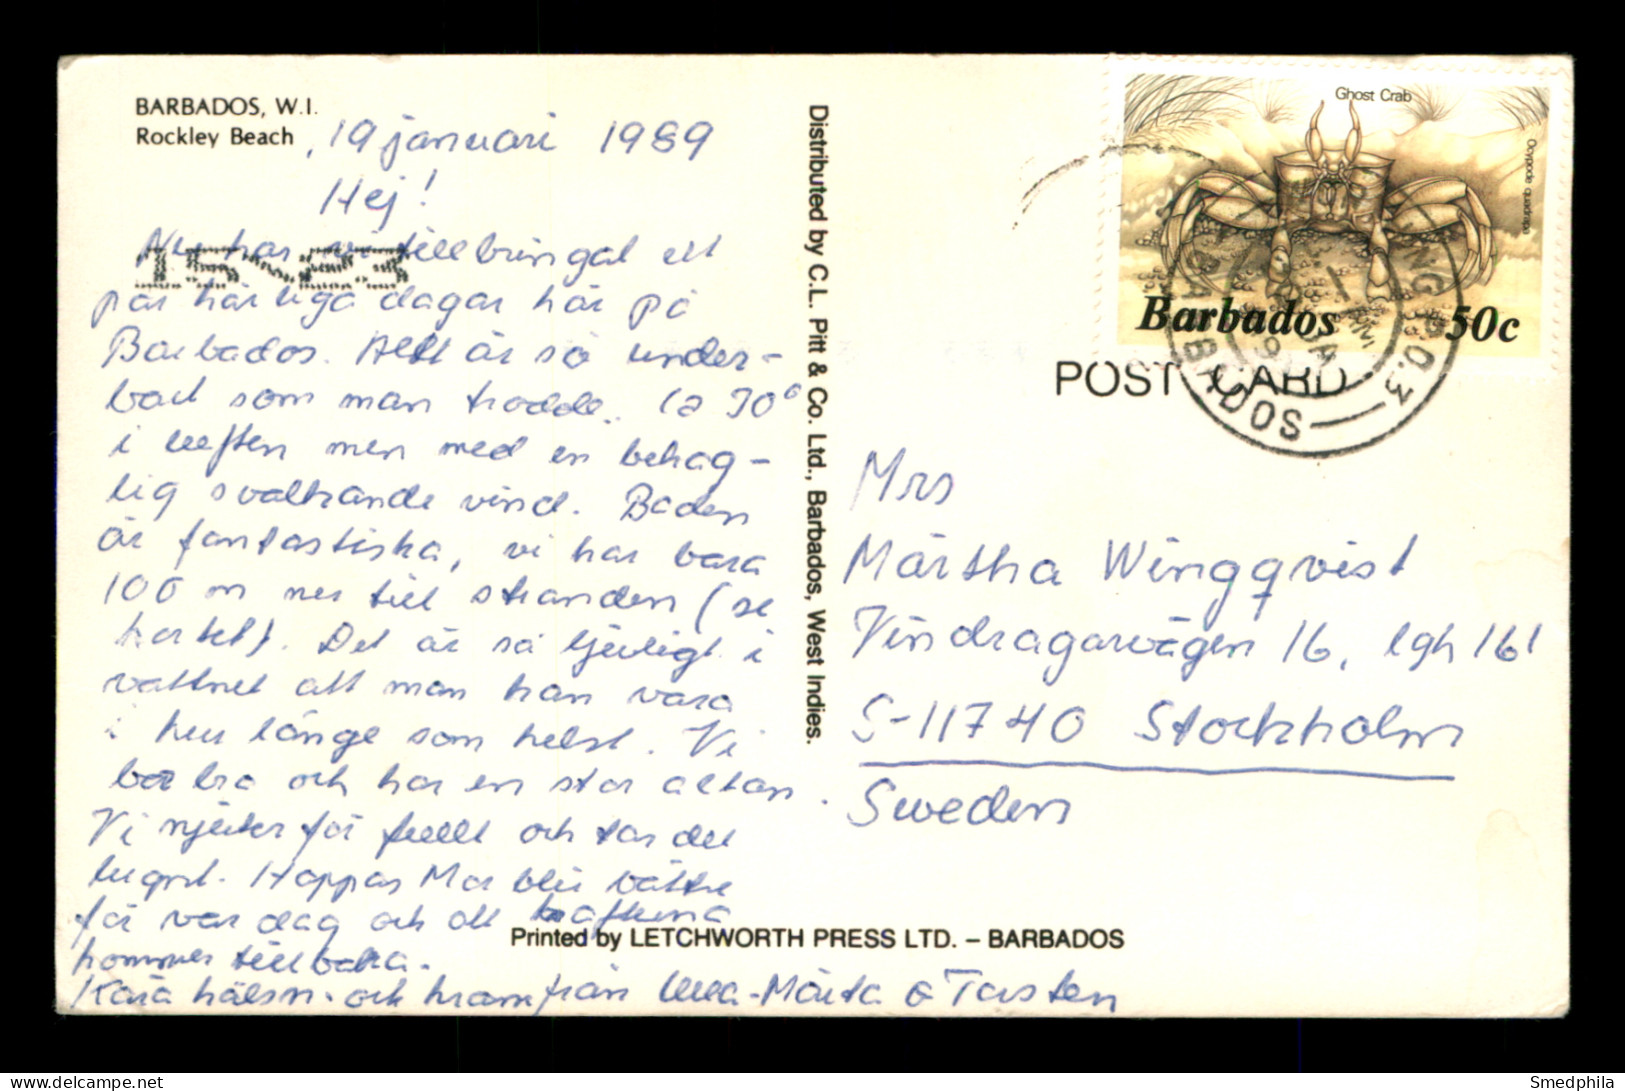 BARBADOS, W.I.
Rockley Beach
, 19 januari 1989
Hej!
Nu har vi tillbringat ett
par härliga dagar här på
Barbados. Allt är så under-
bart som man trodde. Ca 30°
i luften men med en behag-
lig svalkande vind. Baden
är fantastiska, vi har bara
100 m ner till stranden (se
kortet). Det är så ljuvligt i
vattnet att man kan vara
i hur länge som helst. Vi
bor bra och har en stor altan.
Vi njuter för fullt och tar det
lugnt. Hoppas Mor blir bättre
för var dag och att krafterna
kommer tillbaka.
Kära hälsn. och kram från Ulla-Märta o Torsten
Distributed by C.L. Pitt & Co. Ltd., Barbados, West Indies.
Printed by LETCHWORTH PRESS LTD. – BARBADOS
Ghost Crab
Ocypode quadrata
Barbados 50c
POST CARD
BARBADOS
Mrs
Märtha Wingqvist
Vindragarvägen 16, lgh 161
S-117 40 Stockholm
Sweden
Smedphila